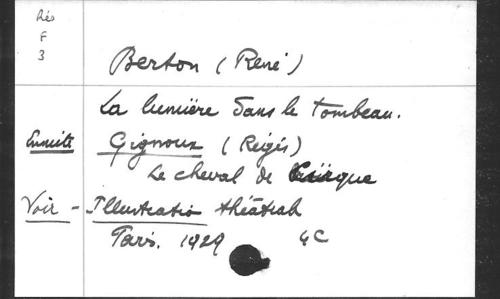 Rés
F
3
Berton (René)
La lumière dans le tombeau.
Ensuite Gignoux (Régis)
Le cheval de cirque
Voir - Illustration théâtrale
Paris. 1929 4C